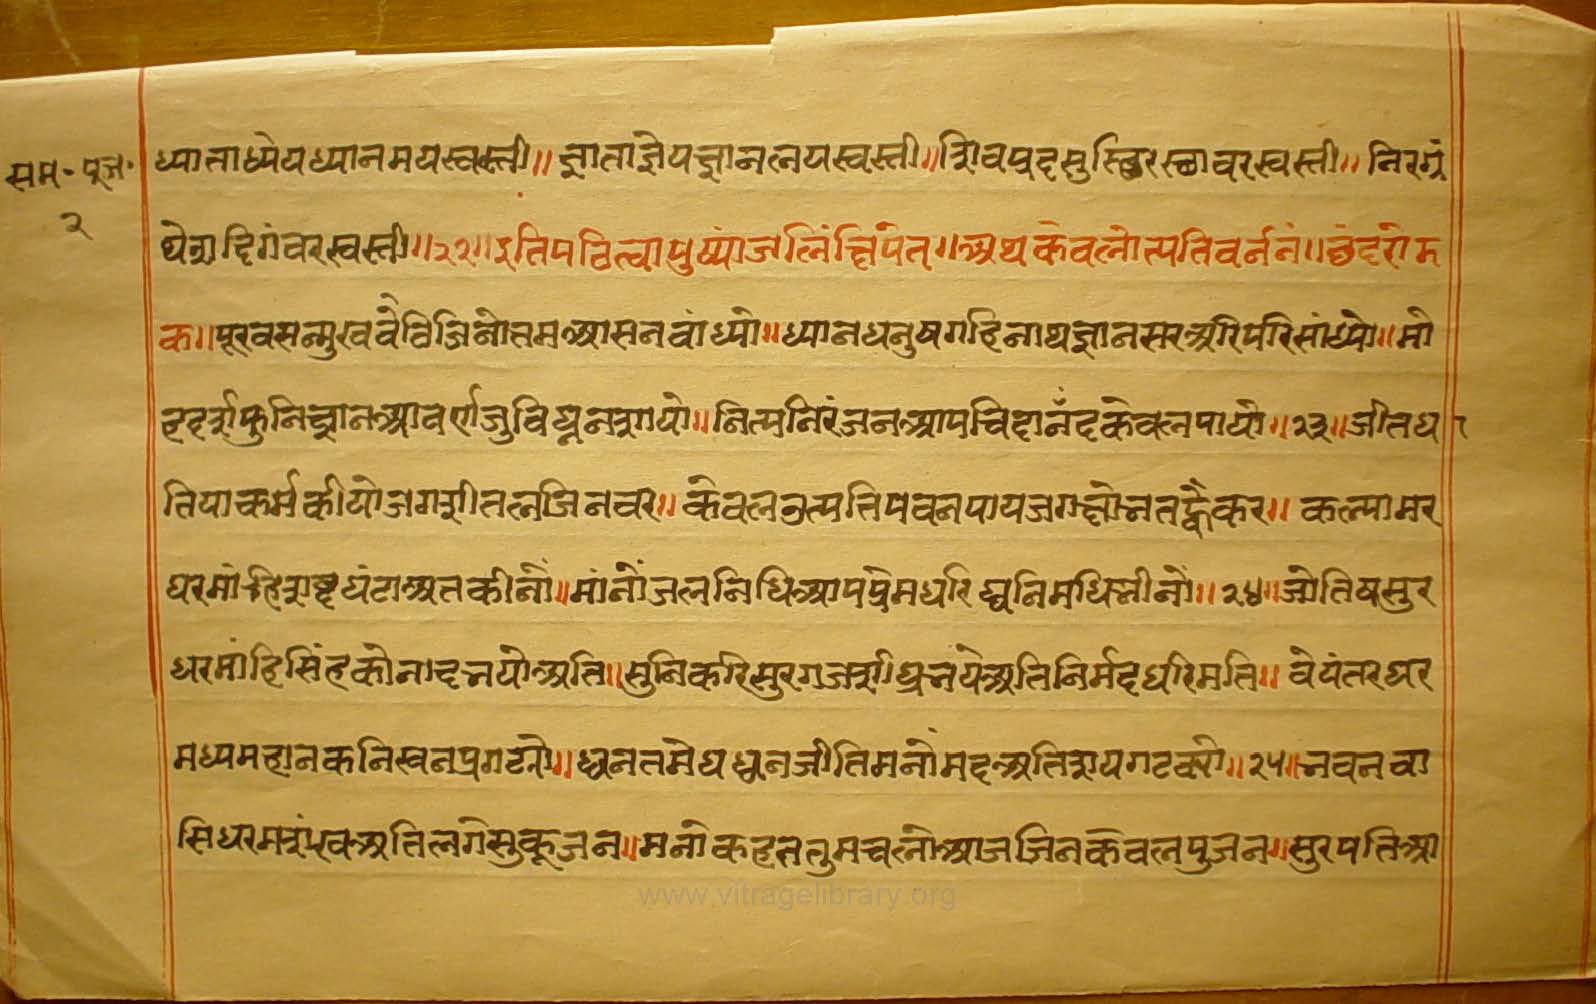 सम॰ पूज॰
२
ध्याताध्येयध्यानमयस्वस्ती॥ ज्ञाताज्ञेयज्ञानलयस्वस्ती॥ शिवपुदसुस्थिरस्थावरस्वस्ती॥ निरग्रं
थेशदिगंवरस्वस्ती॥२२॥ इतिपठित्वापुष्पांजलिंक्षिपेत्॥ अथकेवलोत्पतिवर्ननं॥ छंदरोम
क॥ पूरवसन्मुखवैठिजिनोतमआसनवांध्यो॥ ध्यानधनुषगहिनाथज्ञानसरअरिपरिसांध्यो॥ मो
हदर्शफुनिज्ञानआवर्णजुविघ्ननशायो॥ नित्पनिरंजनआपचिदानँदकेवलपायो॥२३॥ जीतघ
तियाकर्मकीयोजगशीतलजिनवर॥ केवलउत्पत्तिपवनपायजगक्षोनतह्वैकर॥ कल्पामर
घरमांहिशष्टघंटाअतकीनोँ॥ मांनोँजलनिधिआपप्रेमधरिध्वनिमधिलीनोँ॥२४॥ जोतिषसुर
धरमांहिसिंहकोनादनयोअति॥ सुनिकरिसुरगजशीघ्रनयेअतिनिर्मदधरिमति॥ वेयंतरघर
मध्यमहानकनिस्वनप्रगटनो॥ ध्वनतमेघध्वनजीतिमनोँमहअतिशयगटक्यो॥२५॥ नवनवा
सिघरमशंषवअतिलगेसुकूजन॥ मनोकहततुमचलोआजजिनकेवलपुजन॥ सुरपतिआ
www.vitragelibrary.org